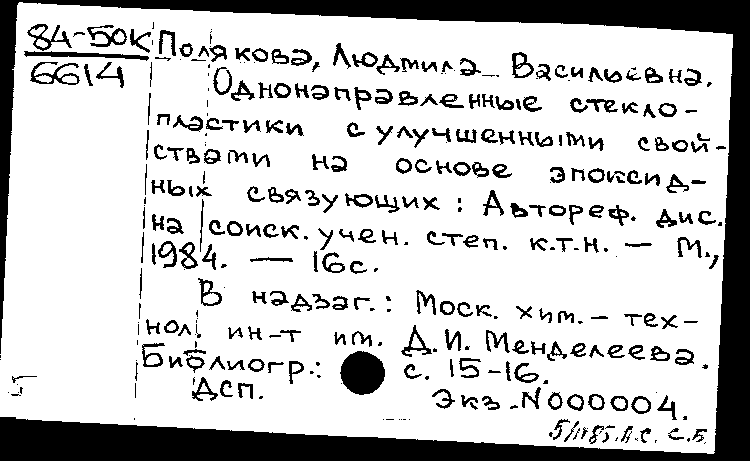 84-50К
6614
Полякова, Людмила Васильевна.
Однонаправленные стекло-
пластики с улучшенными свой-
ствами на основе эпоксид-
ных связующих : Автореф. дис.
на соиск. учен. степ. к.т.н. — М.,
1984. — 16с.
В надзаг.: Моск. хим.-тех-
нол. ин-т им. Д.И. Менделеева.
Библиогр.: с. 15-16.
ДСП. Экз. N000004.
А.С. С.Б.